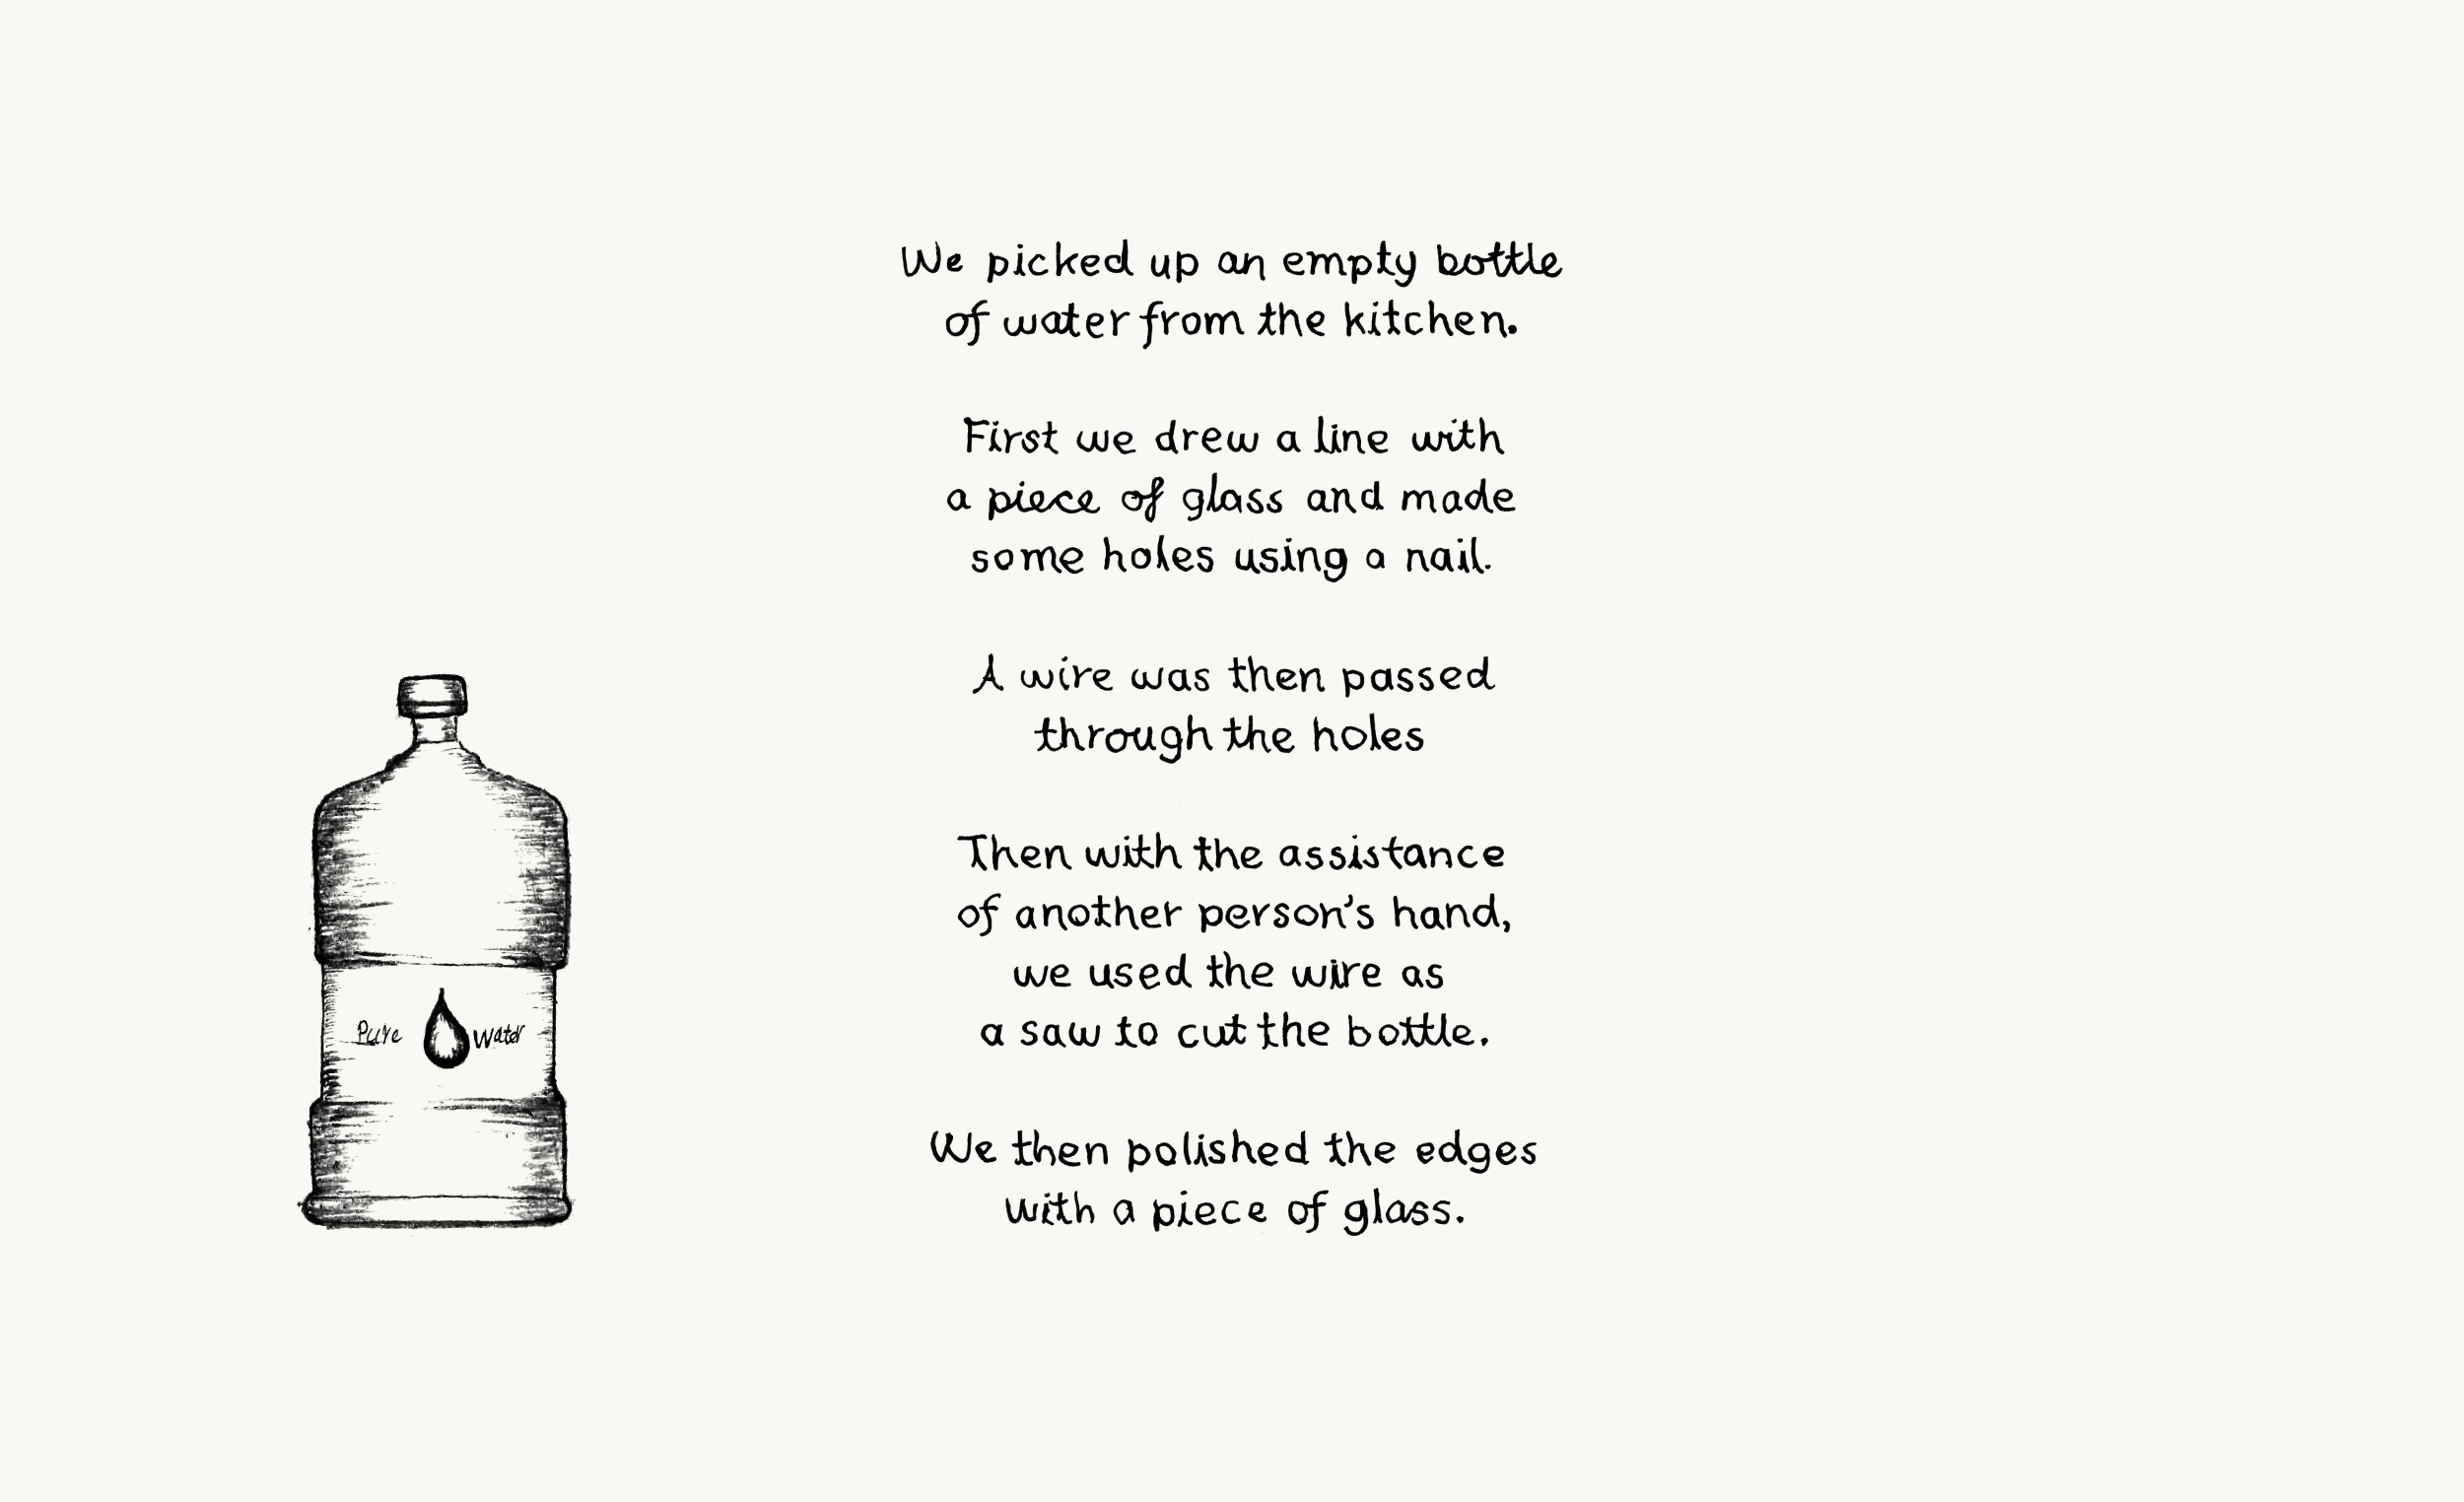 We picked up an empty bottle
of water from the kitchen.
First we drew a line with
a piece of glass and made
some holes using a nail.
A wire was then passed
through the holes
Then with the assistance
of another person's hand,
we used the wire as
a saw to cut the bottle.
We then polished the edges
with a piece of glass.
Pure Water